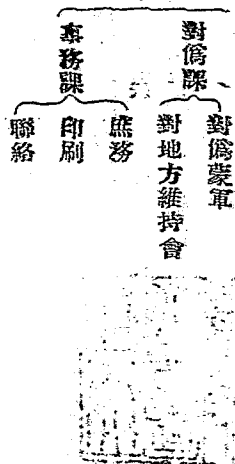 對僞課
對僞蒙軍
對地方維持會
事務課
庶務
印刷
聯絡